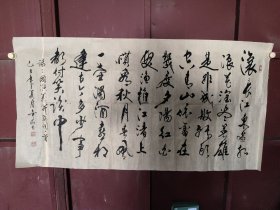 滚々长江东逝水
浪花淘尽英雄
是非成败转头
空青山依旧在
几度夕阳红白
发渔樵江渚上
惯看秋月春风
一壶浊酒喜相
逢古今多少事
都付笑谈中